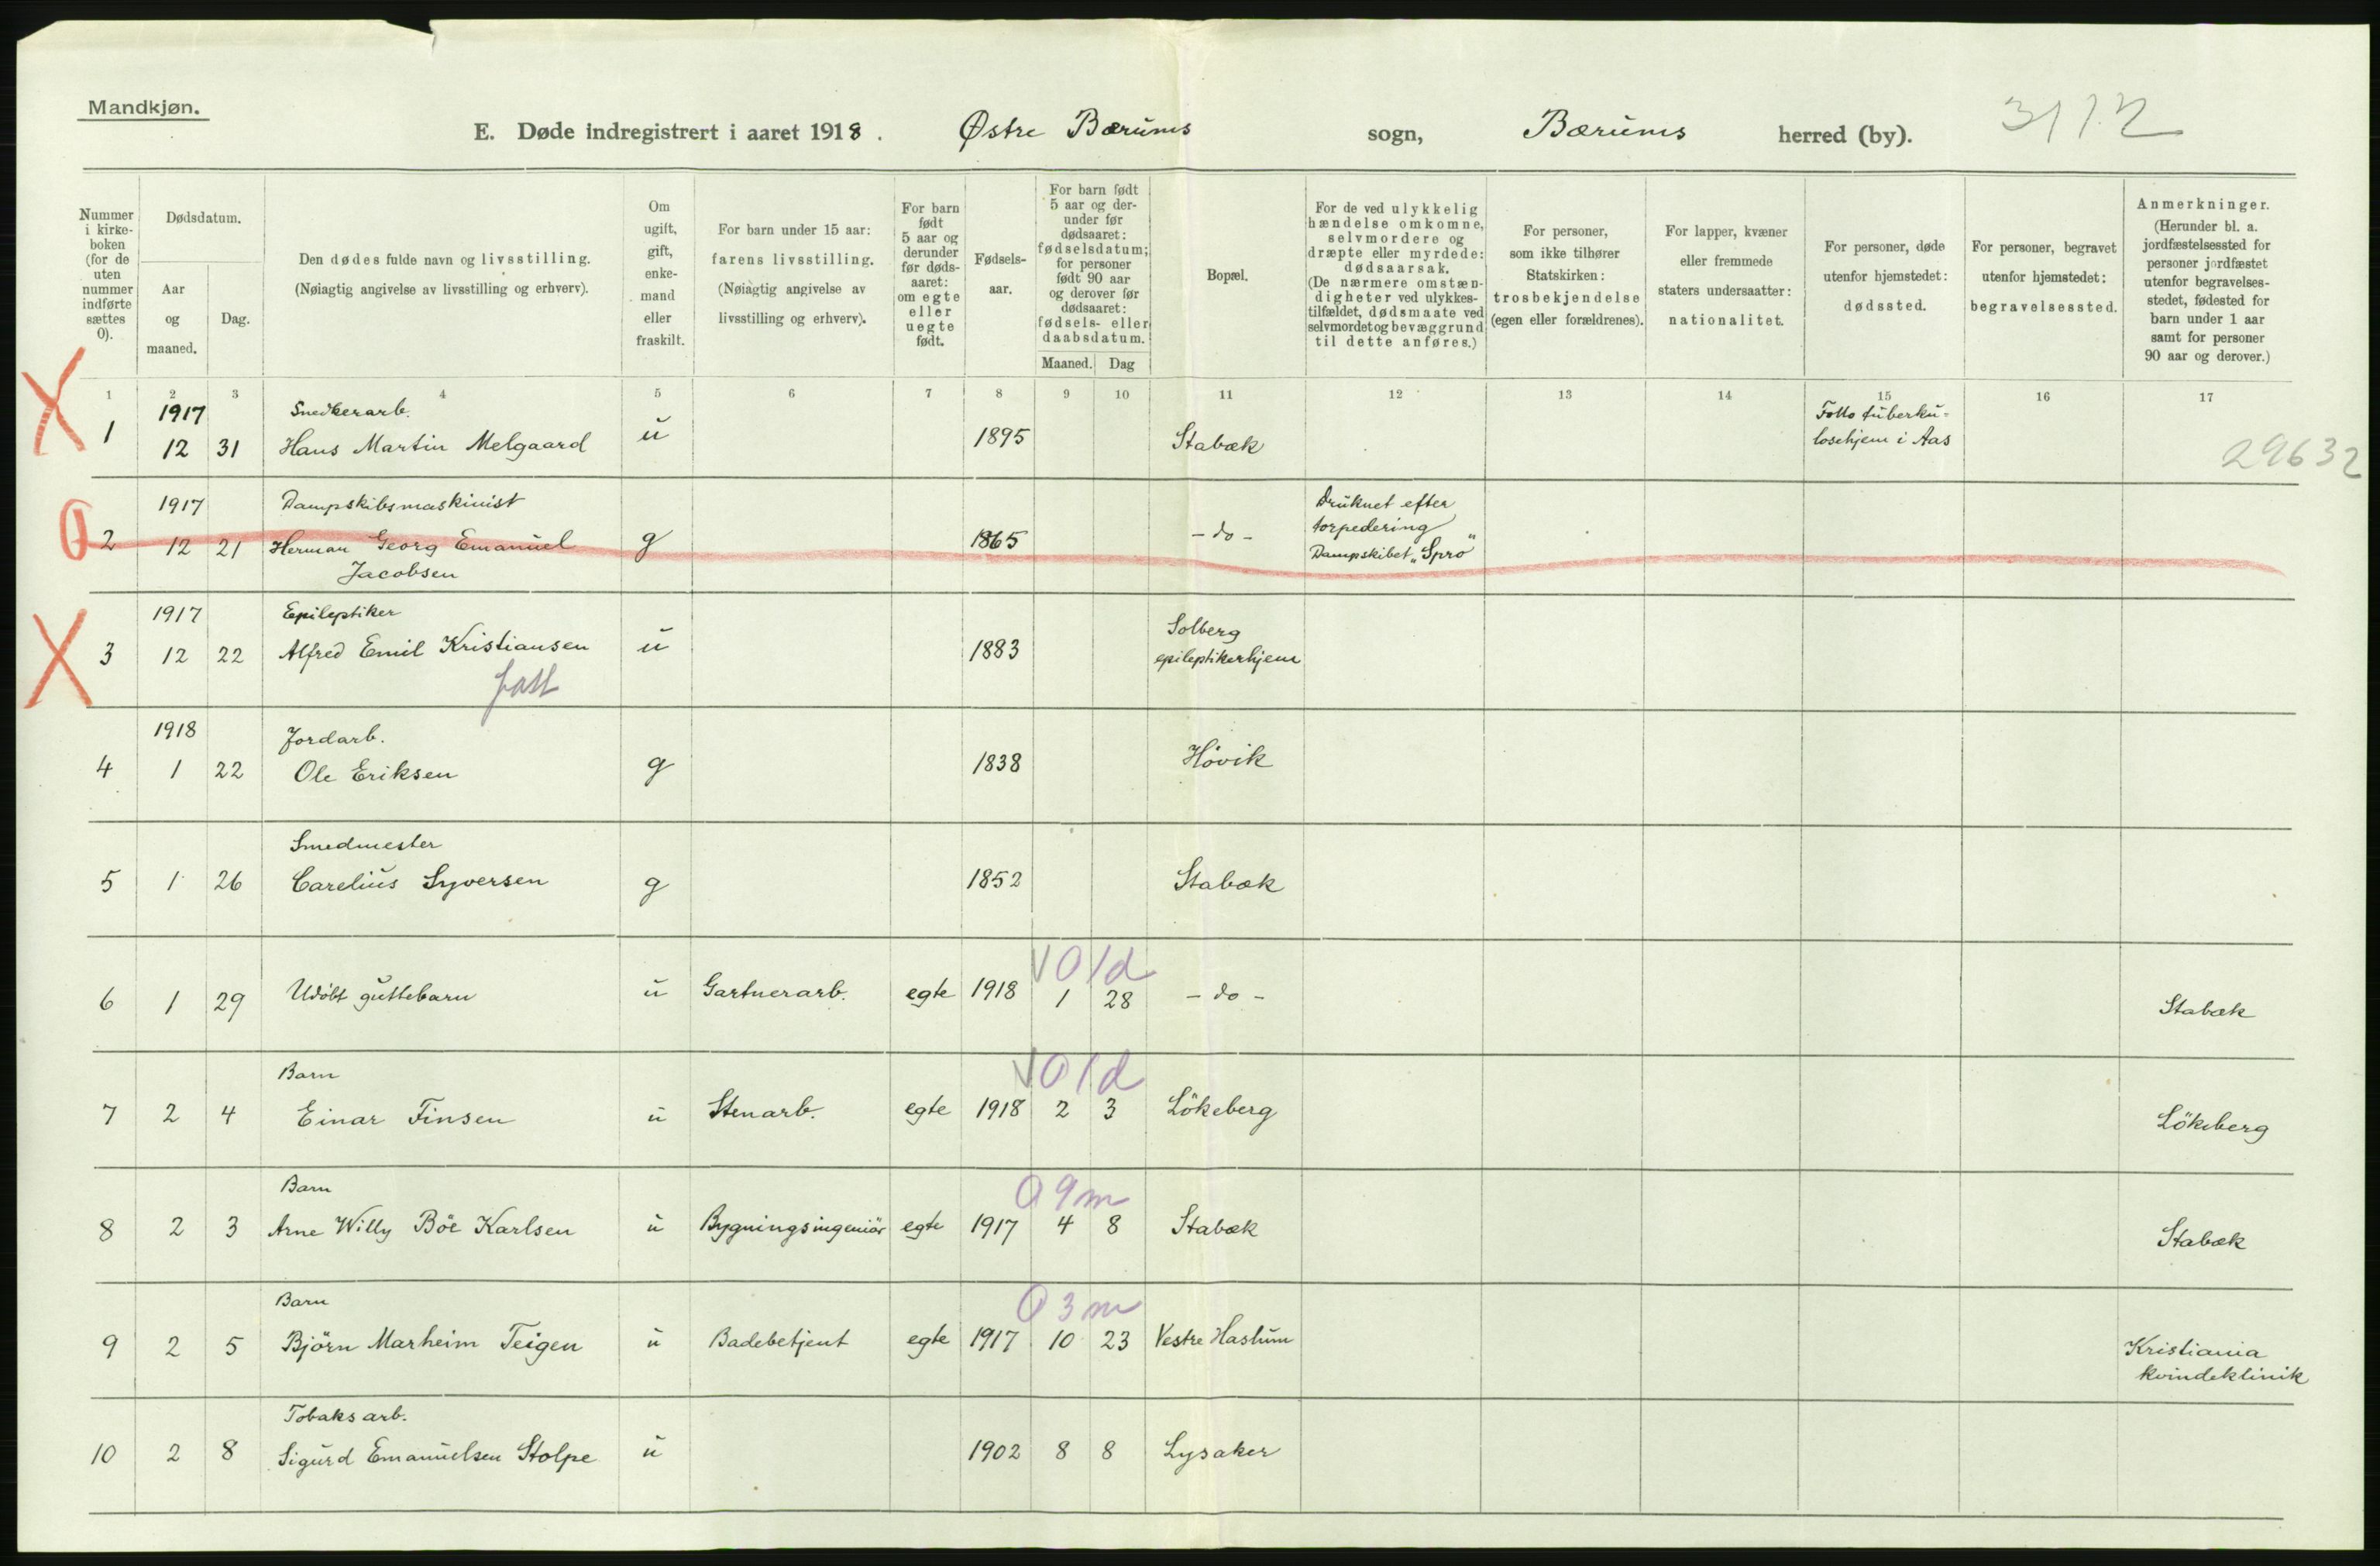 Mandkjøn.
E. Døde indregistrert i aaret 1918. Østre Bærums sogn, Bærums herred (by). 3112
Nummer i kirke-boken (for de uten nummer indførte sættes 0).
Dødsdatum.
Aar og maaned.
Dag.
Den dødes fulde navn og livsstilling.
(Nøiagtig angivelse av livsstilling og erhverv).
Om ugift, gift, enke-mand eller fraskilt.
For barn under 15 aar: farens livsstilling.
(Nøiagtig angivelse av livsstilling og erhverv).
For barn født 5 aar og derunder før døds-aaret: om egte eller uegte født.
Fødsels-aar.
For barn født 5 aar og der-under før dødsaaret: fødselsdatum; for personer født 90 aar og derover før dødsaaret: fødsels- eller daabsdatum.
Maaned. Dag
Bopæl.
For de ved ulykkelig hændelse omkomne, selvmordere og dræpte eller myrdede: dødsaarsak.
(De nærmere omstæn-digheter ved ulykkes-tilfældet, dødsmaate ved selvmordet og bevæggrund til dette anføres.)
For personer, som ikke tilhører Statskirken: trosbekjendelse (egen eller forældrenes).
For lapper, kvæner eller fremmede staters undersaatter: nationalitet.
For personer, døde utenfor hjemstedet: dødssted.
For personer, begravet utenfor hjemstedet: begravelsessted.
Anmerkninger.
(Herunder bl. a. jordfæstelsessted for personer jordfæstet utenfor begravelses-stedet, fødested for barn under 1 aar samt for personer 90 aar og derover.)
1 2 3 4 5 6 7 8 9 10 11 12 13 14 15 16 17
1917 Snedkerarb. Follo tuberku-
1 12 31 Hans Martin Melgaard u 1895 Stabæk losehjem i Aas 29632
1917 Dampskibsmaskinist Druknet efter
torpedering
2 12 21 Herman Georg Emanuel g 1865 - do - Dampskibet „Spro"
Jacobsen
1917 Epileptiker Solberg
3 12 22 Alfred Emil Kristiansen u 1883 epileptikerhjem
1918 Jordarb.
4 1 22 Ole Eriksen g 1838 Høvik
Smedmester
5 1 26 Carelius Syversen g 1852 Stabæk
V 0 1d
6 1 29 Udöbt guttebarn u Gartnerarb. egte 1918 1 28 - do - Stabæk
Barn V 0 1d
7 2 4 Einar Finsen u Stenarb. egte 1918 2 3 Lökeberg Lökeberg
Barn 0 9m
8 2 3 Arne Willy Böe Karlsen u Bygningsingeniör egte 1917 4 8 Stabæk Stabæk
Barn 0 3m
9 2 5 Björn Marheim Teigen u Badebetjent egte 1917 10 23 Vestre Haslum Kristiania
kvindeklinik
Tobaksarb.
10 2 8 Sigurd Emanuelsen Stolpe u 1902 8 8 Lysaker